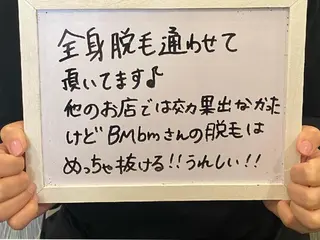 全身脱毛通わせて
頂いてます♪
他のお店では効果出なかった
けどBMbmさんの脱毛は
めっちゃ抜ける!!うれしい!!